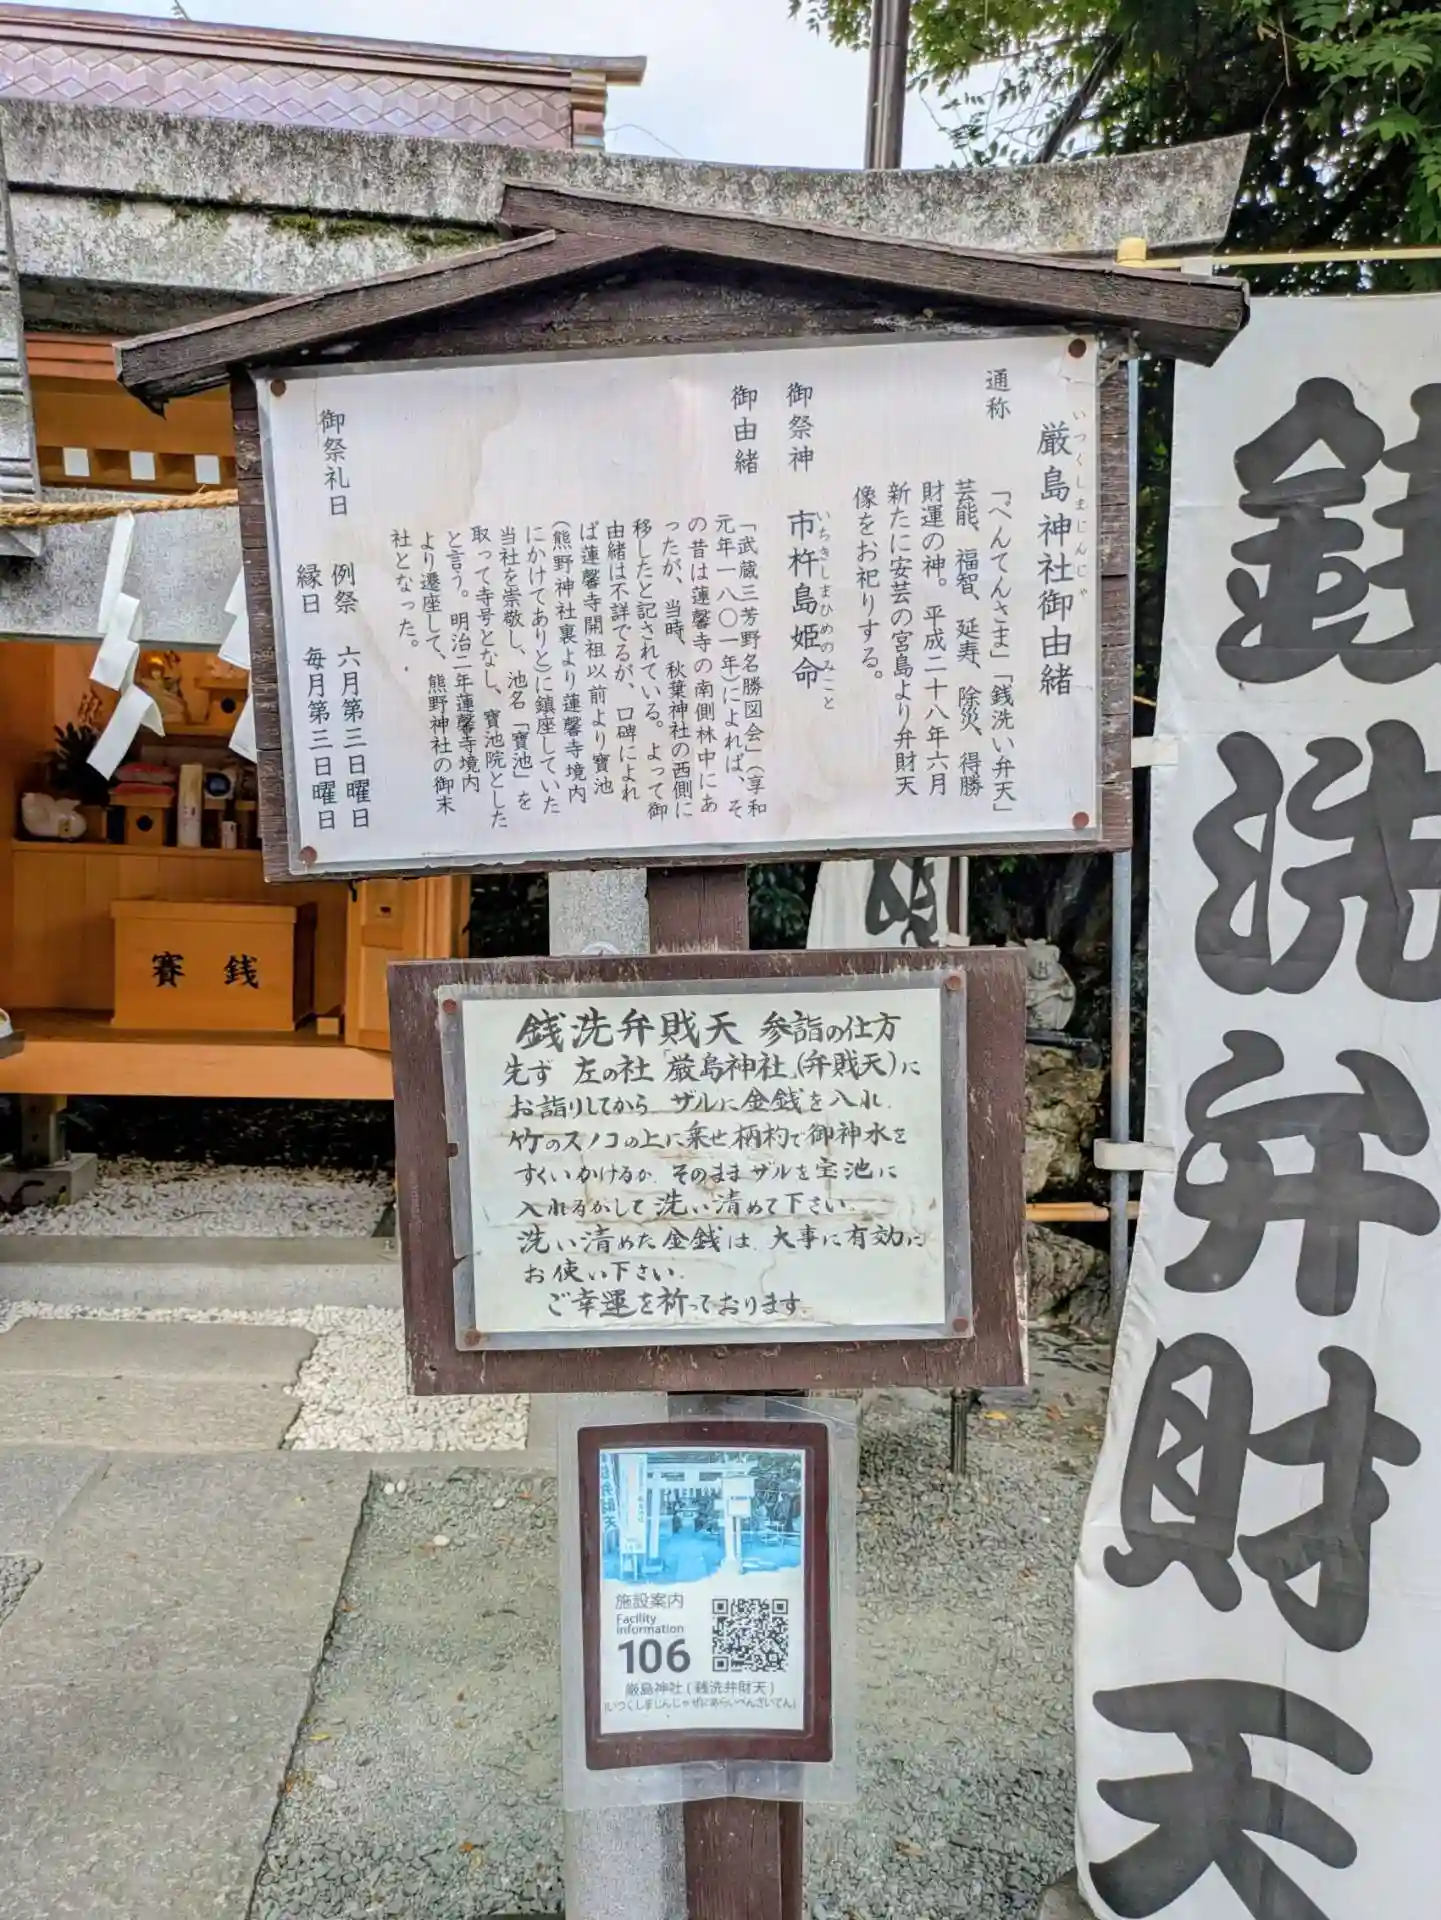 厳島神社御由緒
いつくしまじんじゃ
通称
「べんてんさま」「銭洗い弁天」
芸能、福智、延寿、除災、得勝
財運の神。平成二十八年六月
新たに安芸の宮島より弁財天
像をお祀りする。
御祭神
市杵島姫命
いちきしまひめのみこと
御由緒
「武蔵三芳野名勝図会」(享和
元年一八〇一年)によれば、そ
の昔は蓮馨寺の南側林中にあ
ったが、当時、秋葉神社の西側に
移したと記されている。よって御
由緒は不詳でるが、口碑によれ
ば蓮馨寺開祖以前より寶池
(熊野神社裏より蓮馨寺境内
にかけてありと)に鎮座していた
当社を崇敬し、池名「寶池」を
取って寺号となし、寶池院とした
と言う。明治二年蓮馨寺境内
より遷座して、熊野神社の御末
社となった。
御祭礼日
例祭 六月第三日曜日
縁日 毎月第三日曜日
賽銭
銭洗弁財天 参詣の仕方
先ず 左の社「厳島神社」(弁財天)に
お詣りしてから ザルに金銭を入れ
竹のスノコの上に乗せ柄杓で御神水を
すくいかけるか そのままザルを宝池に
入れるかして洗い清めて下さい
洗い清めた金銭は 大事に有効に
お使い下さい
ご幸運を祈っております
施設案内
Facility
information
106
厳島神社(銭洗弁財天)
(いつくしまじんじゃ ぜにあらいべんざいてん)
銭洗弁財天